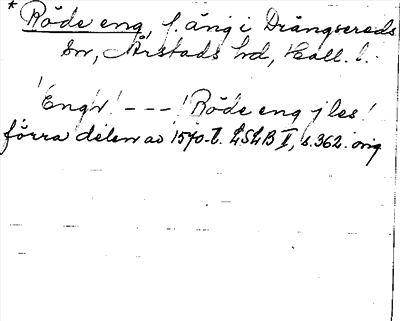 * Röde eng, f. äng i Drängsereds
sn, Årstads hd, Hall. l.
'Engn' --- 'Röde eng jles'
förra delen av 1540-t. LSLB II, s. 362. orig